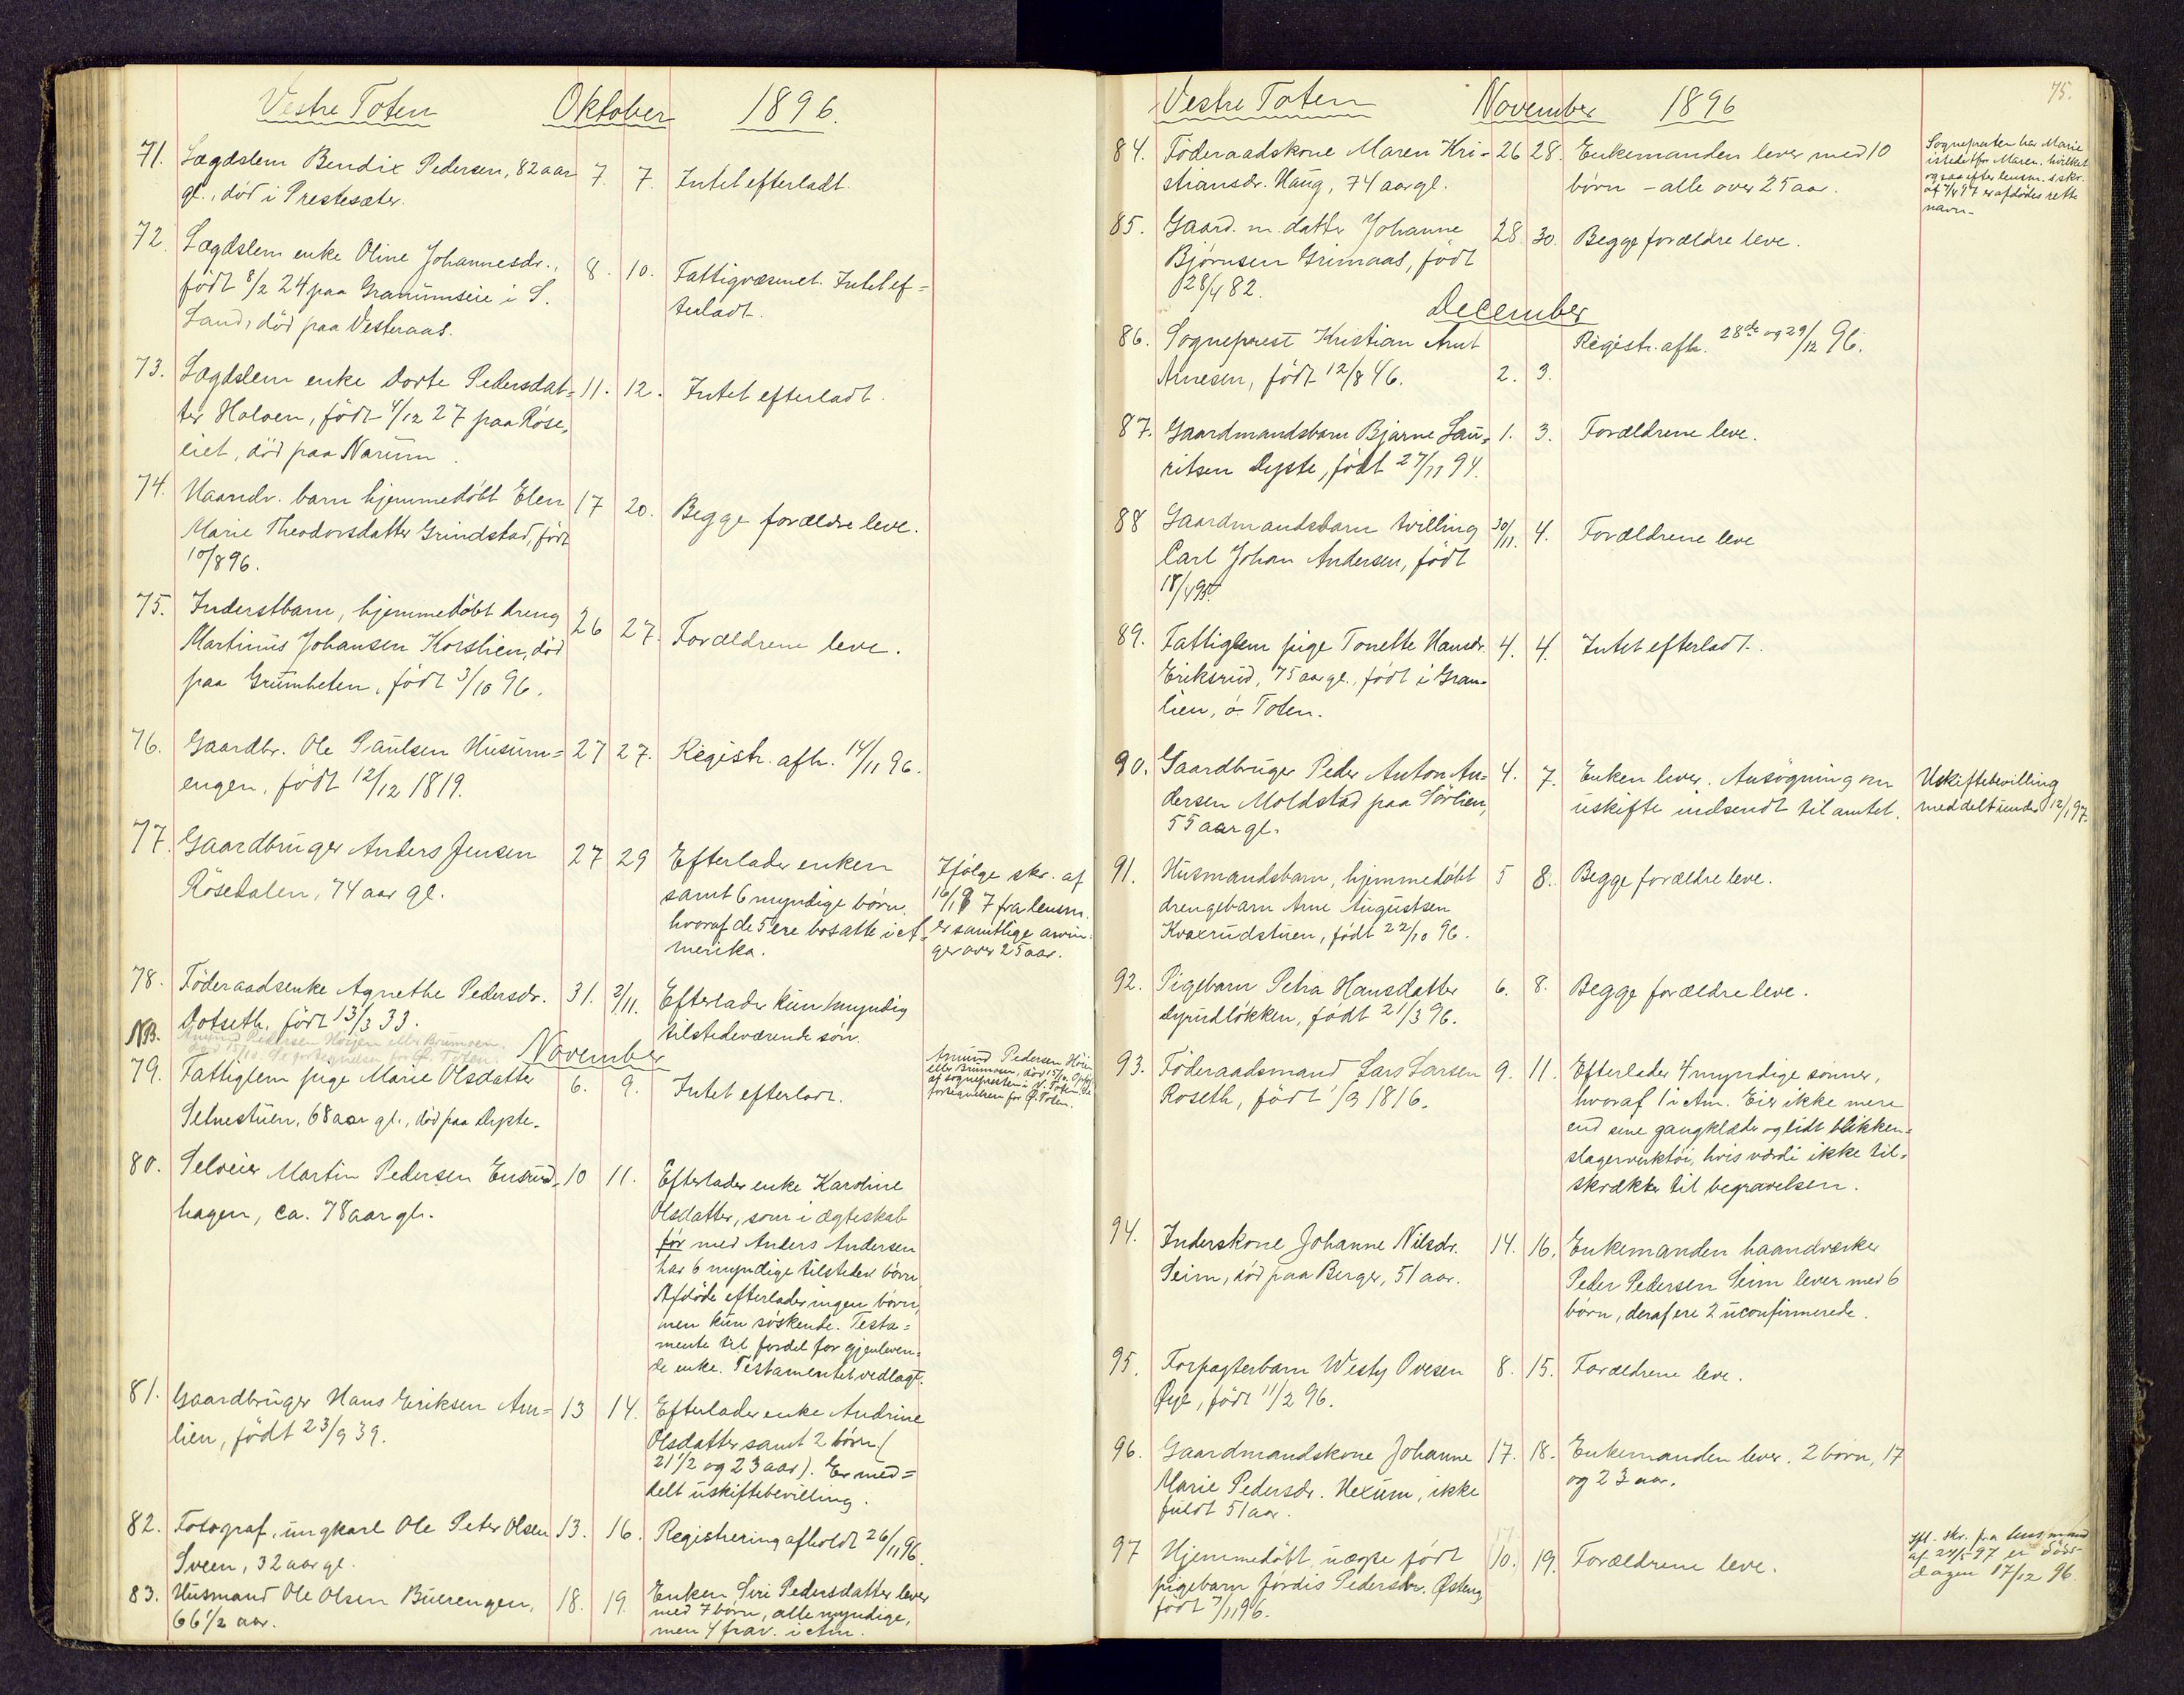 Vestre Toten Oktober 1896.
71. Lægdslem Bendix Pedersen, 82 aar 7. 7. Intet efterladt.
gl., död i Prestesæter.
72. Lægdslem enke Oline Johannesdr., 8. 10. Fattigvæsenet. Intet ef=
födt 8/2 24 paa Granumseie i S. terladt.
Land, död paa Vesteraas.
73. Lægdslem enke Dorte Pedersdat= 11. 12. Intet efterladt.
ter Holoen, födt 4/12 27 paa Röse,
eiet, död paa Narum.
74. Haandv. barn hjemmedöbt Elen 17 20. Begge forældre leve.
Marie Theodorsdatter Grindstad, födt
10/8 96.
75. Inderstbarn, hjemmedöbt dreng 26 27. Forældrene leve.
Martinus Johansen Korslien, död
paa Grumheten, födt 3/10 96.
76. Gaardbr. Ole Paulsen Husum= 27 27. Registr. afh. 14/11 96.
engen, födt 12/12 1819.
77. Gaardbruger Anders Jensen 27 29 Efterlader enken
Rösedalen, 74 aar gl. samt 6 myndige börn,
hvoraf de 5 ere bosatte i A=
merika.
Ifölge skr. af
16/1 97 fra lensm.
er samtlige arvin-
ger over 25 aar.
78. Föderaadsenke Agnethe Pedersdr. 31. 3/11. Efterlader kun 1 myndig
Dotseth, födt 13/3 33. tilstedeværende sön.
NB. Amund Pedersen Höien eller Brumoen.
död 15/10. Se fortegnelsen for Ø. Toten.
November
Amund Pedersen Höien
eller Brumoen, död 15/10. Opgt
af sognepresten i V. Toten. Se
fortegnelsen for Ø. Toten.
79. Fattiglem pige Marie Olsdatter 6. 9. Intet efterladt.
Selnestuen, 68 aar gl., död paa Dyste.
80. Selveier Martin Pedersen Ensrud, 10 11. Efterlader enke Karoline
hagen, ca. 78 aar gl. Olsdatter, som i ægteskab
för med Anders Andersen
har 6 myndige tilsteder börn.
Afdöde efterlader ingen börn,
men kun söskende. Testa=
mente til fordel for gjenleven=
de enke. Testamentet vedlagt.
81. Gaardbruger Hans Eriksen Am= 13 14. Efterlader enke Andrine
lien, födt 23/9 39. Olsdatter samt 2 börn (
21 1/2 og 23 aar). Er med=
delt uskiftebevilling.
82. Fotograf, ungkarl Ole Peter Olsen 13. 16. Registrering afholdt 26/11 96.
Sveen, 32 aar gl.
83. Husmand Ole Olsen Buerengen, 18. 19. Enken Siri Pedersdatter lever
66 1/2 aar. med 7 börn, alle myndige,
men 4 frav. i Am.
75.
Vestre Toten November 1896
84. Föderaadskone Maren Kri= 26 28. Enkemanden lever med 10
stiansdr. Haug, 74 aar gl. börn - alle over 25 aar.
Sognepresten har Marie
istedetfor Maren, hvilket
ogsaa efter lensm.s skr.
af 7/4 97 er afdödes rette
navn.
85. Gaard. m. datter Johanne 28. 30. Begge forældre leve.
Björnsen Grimaas, födt
28/4 82.
December
86. Sogneprest Kristian Arnt 2. 3. Registr. afh. 28de og 29/12 96.
Arnesen, födt 12/8 46.
87. Gaardmandsbarn Bjarne Lau, 1. 3. Forældrene leve.
ritsen Dyste, födt 27/11 94.
88 Gaardmandsbarn tvilling 30/11. 4. Forældrene leve
Carl Johan Andersen, födt
18/4 95.
89. Fattiglem pige Tonette Hansdr. 4. 4. Intet efterladt.
Eriksrud, 75 aar gl., födt i Gran=
lien, ö. Toten.
90. Gaardbruger Peder Anton An= 4. 7. Enken lever. Ansögning om
dersen Moldstad paa Sörlien, uskifte indsendt til amtet.
55 aar gl.
Uskiftebevilling
meddelt under 12/1 97.
91. Husmandsbarn, hjemmedöbt 5 8. Begge forældre leve.
drengebarn Arne Augustsen
Kvaxrudstuen, födt 22/10 96.
92. Pigebarn Petra Hansdatter 6. 8. Begge forældre leve.
Dyrudlökken, födt 21/3 96.
93. Föderaadsmand Lars Larsen 9. 11. Efterlader 4 myndige sönner,
Roseth, födt 1/3 1816. hvoraf 1 i Am. Eier ikke mere
end sine gangklæder og lidt blikken=
slagerverktöi, hvis værdi ikke til,
strækker til begravelsen.
94. Inderskone Johanne Nilsdr. 14. 16. Enkemanden haandverker
Seim, död paa Berger, 51 aar. Peder Pedersen Seim lever med 6
börn, deraf ere 2 uconfirmerede.
95. Forpagterbarn Westy Ovesen 8. 15. Forældrene leve.
Øye, födt 11/2 96.
96. Gaardmandskone Johanne 17. 18. Enkemanden lever. 2 börn, 17
Marie Pedersdr. Hexum, ikke og 23 aar.
fuldt 51 aar.
97 Hjemmedöbt, uægte födt 17 10. 19. Forældrene leve.
pigebarn Jördis Pedersdr. Østeng
födt 7/11 96.
Ifl. skr. fra lensmand
af 24/5 97 er döds-
dagen 17/12 96.